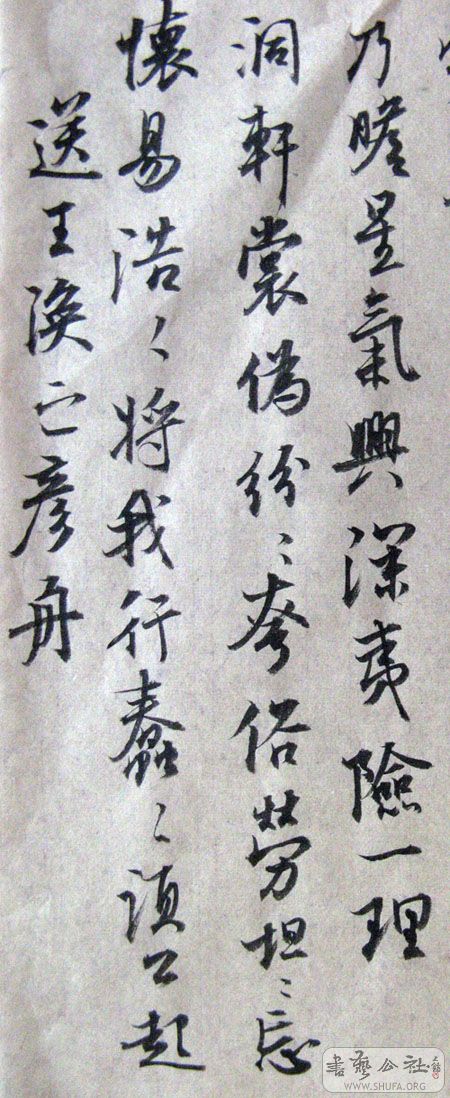 乃瞻星氣興深夷險一理
洞軒裳偽紛〻夸俗勞坦〻忘
懷易浩〻將我行蠢〻須公起
送王渙之彥舟
書藝公社
WWW.SHUFA.ORG